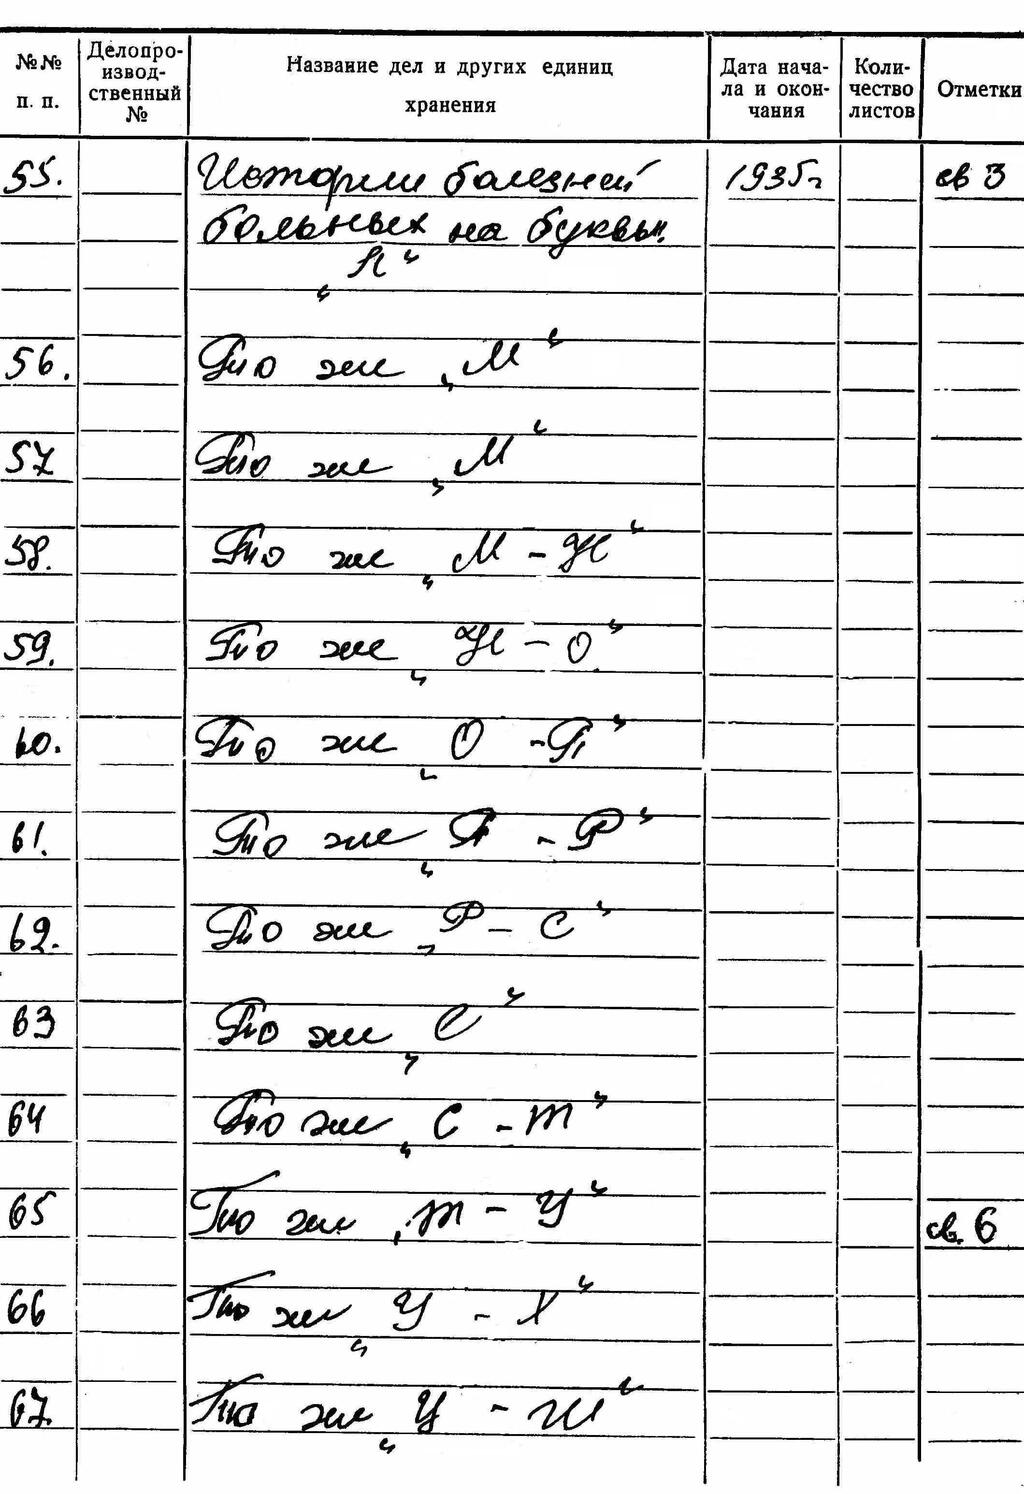 №№ п. п.
Делопро-
извод-
ственный
№
Название дел и других единиц
хранения
Дата нача-
ла и окон-
чания
Коли-
чество
листов
Отметки
55. Истории болезней 1935г св 3
больных на буквы
„Л“
56. То же „М“
57 То же „М“
58. То же „М - Н“
59. То же „Н - О“
60. То же „О - П“
61. То же „П - Р“
62. То же „Р - С“
63 То же „С“
64 То же „С - Т“
65 То же „Т - У“ св. 6
66 То же „У - Х“
67. То же „Ц - Ш“